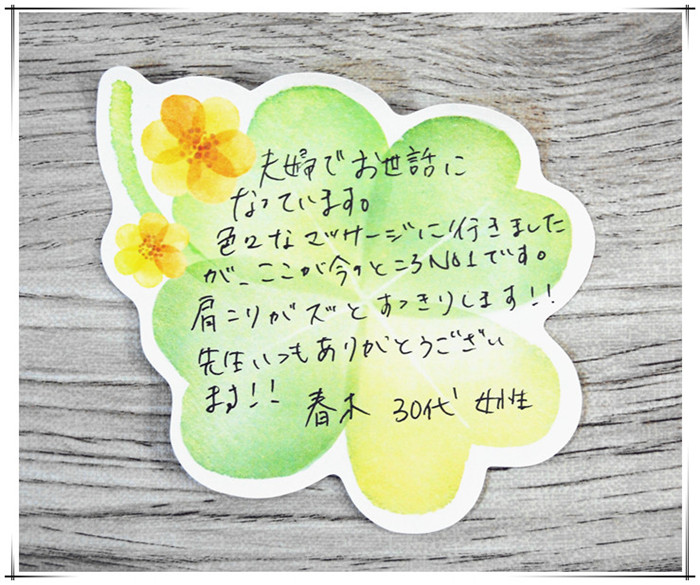 夫婦でお世話に
なっています。
色々なマッサージに行きました
が、ここが今のところNo1です。
肩こりがズとすっきりします!!
先生いつもありがとうござい
ます!!
春木 30代 女性